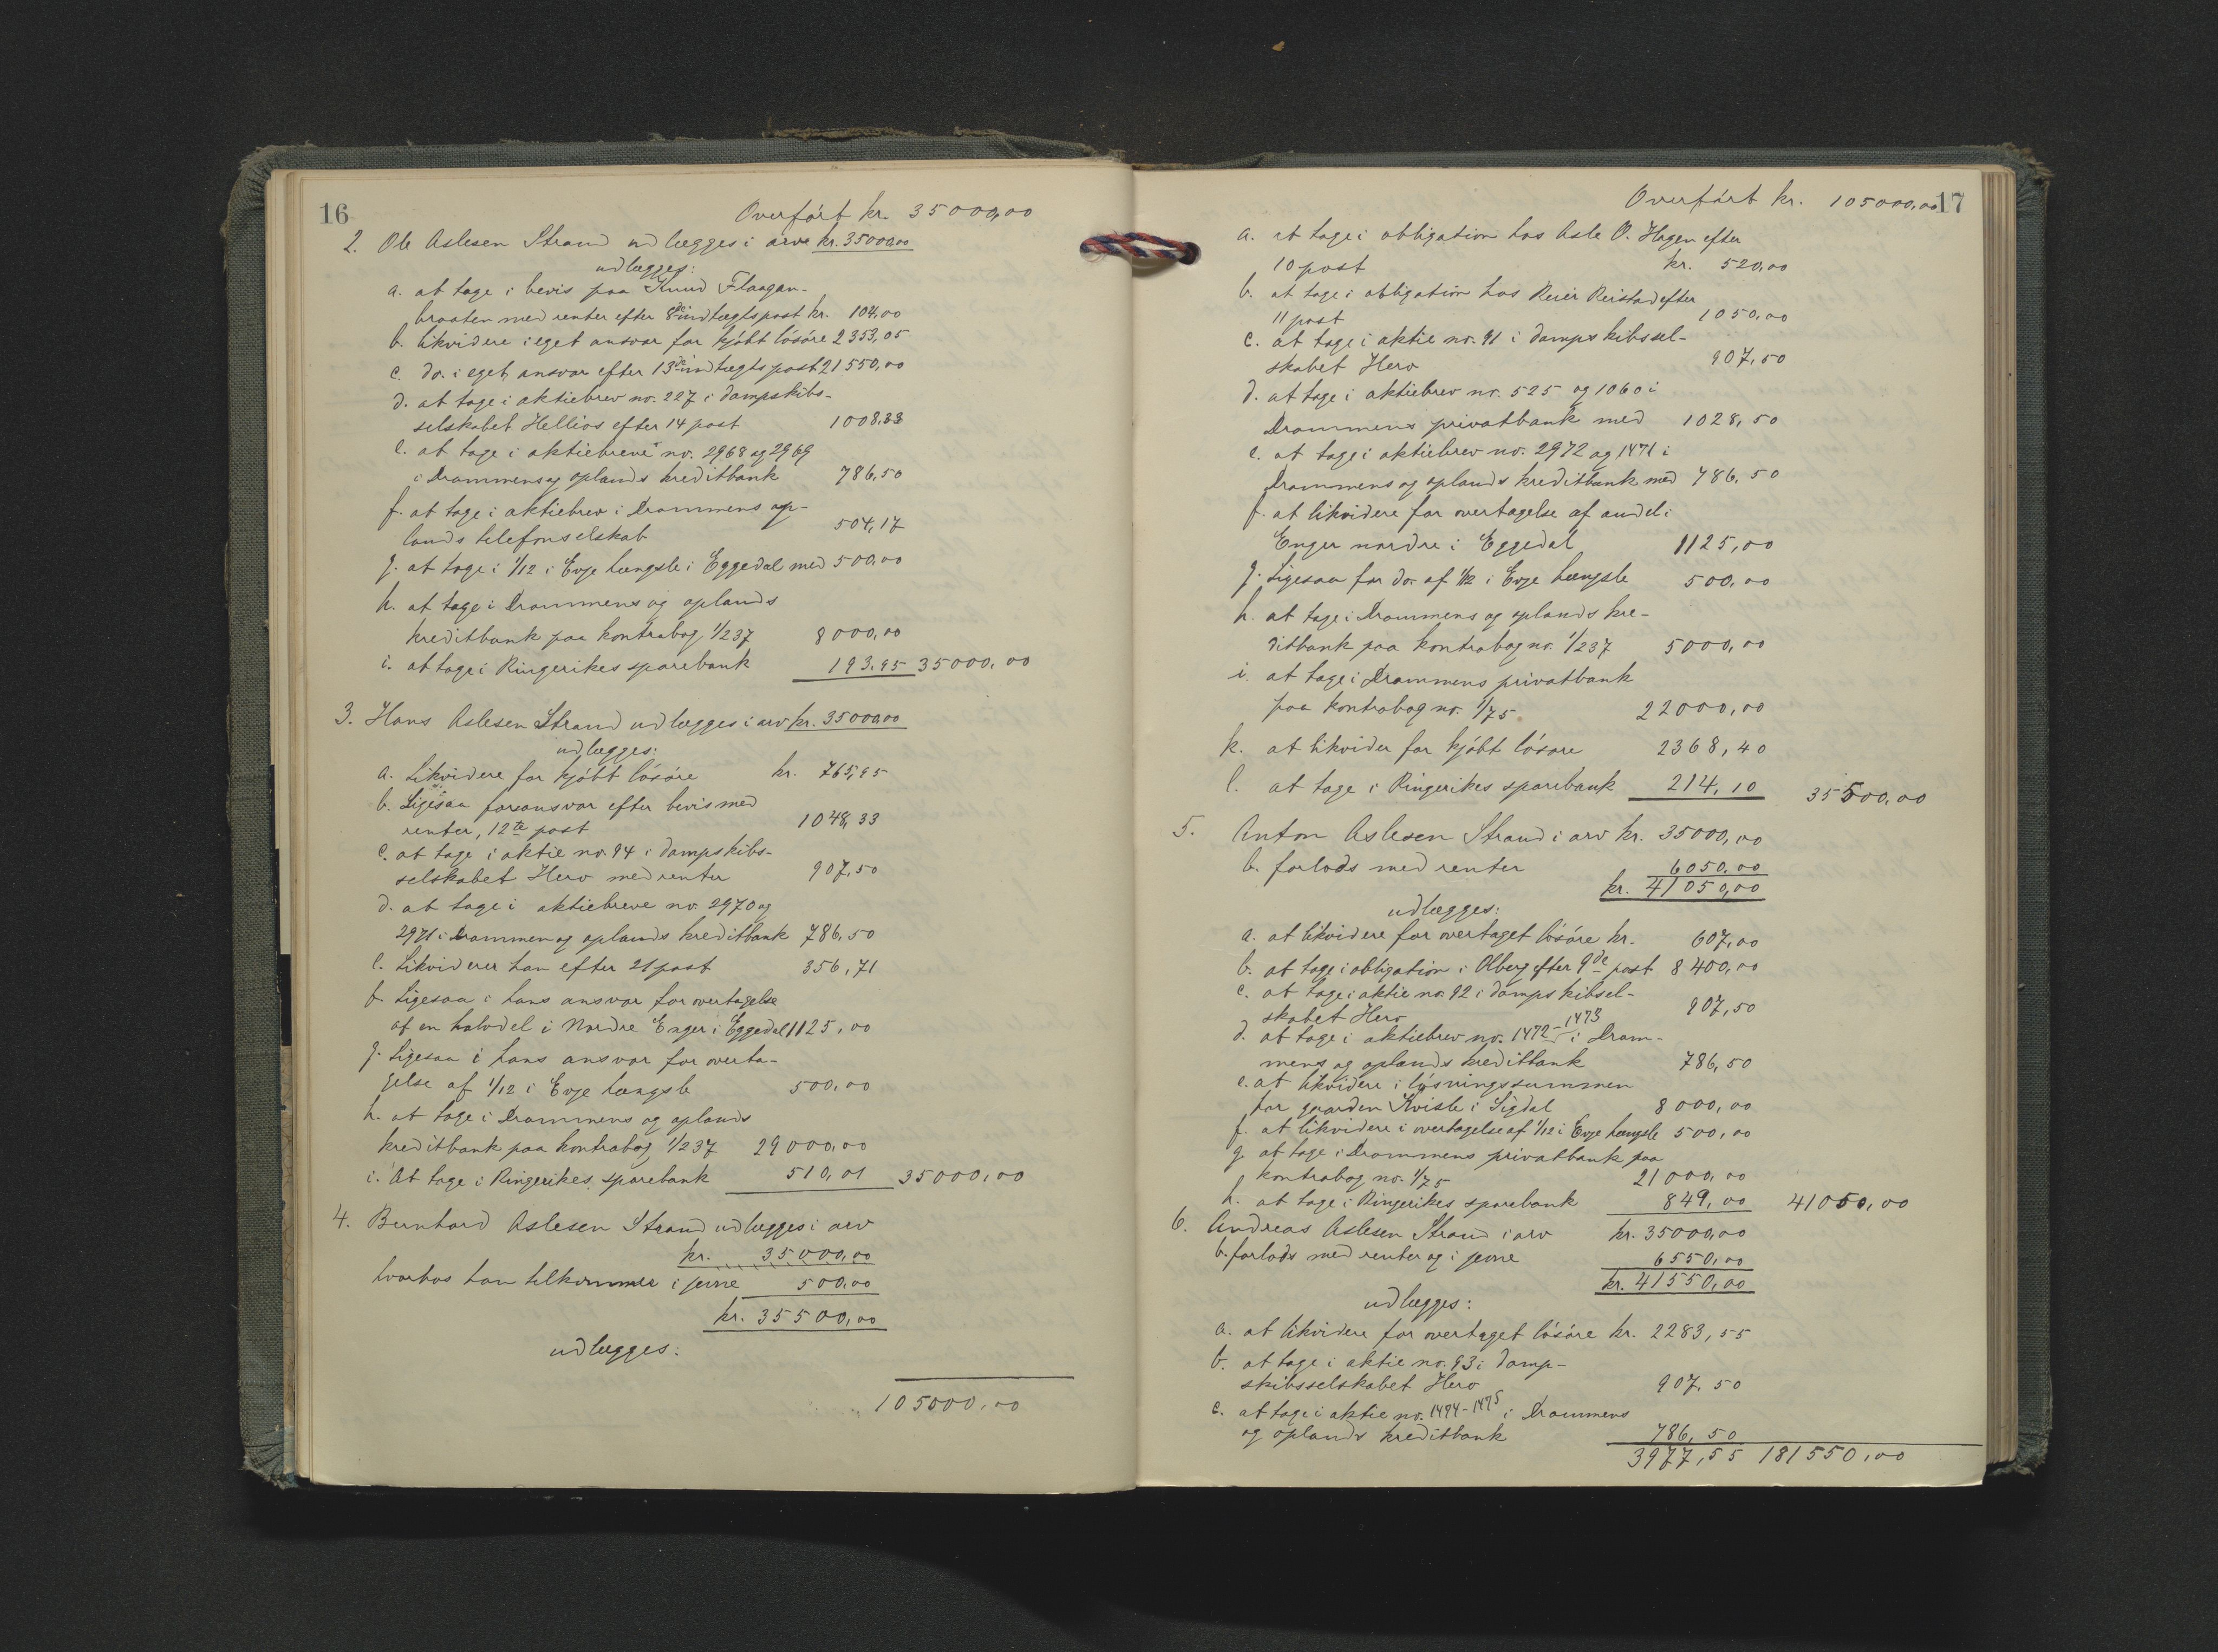 16
Overført kr. 35000,00
2. Ole Aslesen Strand udlægges i arve kr. 35000,00
udlægges:
a. at tage i bevis paa Knud Flaagan-
braaten med renter efter 8de indtægtspost kr. 104,00
b. likvidere i eget ansvar for kjøbt løsøre 2353,05
c. do. i eget ansvar efter 13de indtægtspost 21550,00
d. at tage i aktiebrev no. 227 i dampskibs-
selskabet Hellios efter 14 post 1008,33
e. at tage i aktiebreve no. 2968 og 2969
i Drammens og oplands kreditbank 786,50
f. at tage i aktiebrev i Drammens op-
lands telefonselskab 504,17
g. at tage i 1/12 i Evje længsle i Eggedal med 500,00
h. at tage i Drammens og oplands
kreditbank paa kontrabog 1/237 8000,00
i. at tage i Ringerikes sparebank 193,95 35000,00
3. Hans Aslesen Strand udlægges i arv kr. 35000,00
udlægges:
a. Likvidere for kjøbt løsøre kr. 765,95
b. Ligesaa for ansvar efter bevis med
renter, 12te post 1048,33
c. at tage i aktie no. 94 i dampskibs-
selskabet Hero med renter 907,50
d. at tage i aktiebreve no. 2970 og
2971 i Drammen og oplands kreditbank 786,50
e. Likviderer han efter 21 post 356,71
f. Ligesaa i hans ansvar for overtagelse
af en halvdel i Nordre Enger i Eggedal 1125,00
g. Ligesaa i hans ansvar for overta-
gelse af 1/12 i Evje længsle 500,00
h. at tage i Drammens og oplands
kreditbank paa kontrabog 1/237 29000,00
i. At tage i Ringerikes sparebank 510,01 35000,00
4. Bernhard Aslesen Strand udlægges i arv
kr. 35000,00
hvorhos han tilkommer i 500,00
kr. 35500,00
udlægges:
105000,00
17
Overført kr. 105000,00
a. at tage i obligation hos Asle O. Hagen efter
10 post kr. 520,00
b. at tage i obligation hos Reier Reistad efter
11 post 1050,00
c. at tage i aktie no. 91 i dampskibssel-
skabet Hero 907,50
d. at tage i aktiebrev nr. 525 og 1060 i
Drammens privatbank med 1028,50
e. at tage i aktiebrev no. 2972 og 1471 i
Drammens og oplands kreditbank med 786,50
f. at likvidere for overtagelse af andel i
Enger nordre i Eggedal 1125,00
g. Ligesaa for do. af 1/12 i Evje længsle 500,00
h. at tage i Drammens og oplands kre-
ditbank paa kontrabog no. 1/237 5000,00
i. at tage i Drammens privatbank
paa kontrabog no. 1/75 22000,00
k. at likvider for kjøbt løsøre 2368,40
l. at tage i Ringerikes sparebank 214,10 35500,00
5. Anton Aslesen Strand i arv kr. 35000,00
b. forlods med renter 6050,00
kr. 41050,00
udlægges:
a. at likvidere for overtaget løsøre kr. 607,00
b. at tage i obligation i Olberg efter 9de post 8400,00
c. at tage i aktie no. 92 i dampskibsel-
skabet Hero 907,50
d. at tage i aktiebrev no. 1472-1473 i Dram-
mens og oplands kreditbank 786,50
e. at likvidere i løsningssummen
for gaarden Kvisle i Sigdal 8000,00
f. at likvidere i overtagelse af 1/12 i Evje længsle 500,00
g. at tage i Drammens privatbank paa
kontrabog no. 1/75 21000,00
h. at tage i Ringerikes sparebank 849,00 41050,00
6. Andreas Aslesen Strand i arv kr. 35000,00
b. forlods med renter og i 6550,00
kr. 41550,00
udlægges:
a. at likvidere for overtaget løsøre kr. 2283,55
b. at tage i aktie no. 93 i damp-
skibsselskabet Hero 907,50
c. at tage i aktie no. 1474-1475 i Drammens
og oplands kreditbank 786,50
3977,55 181550,00